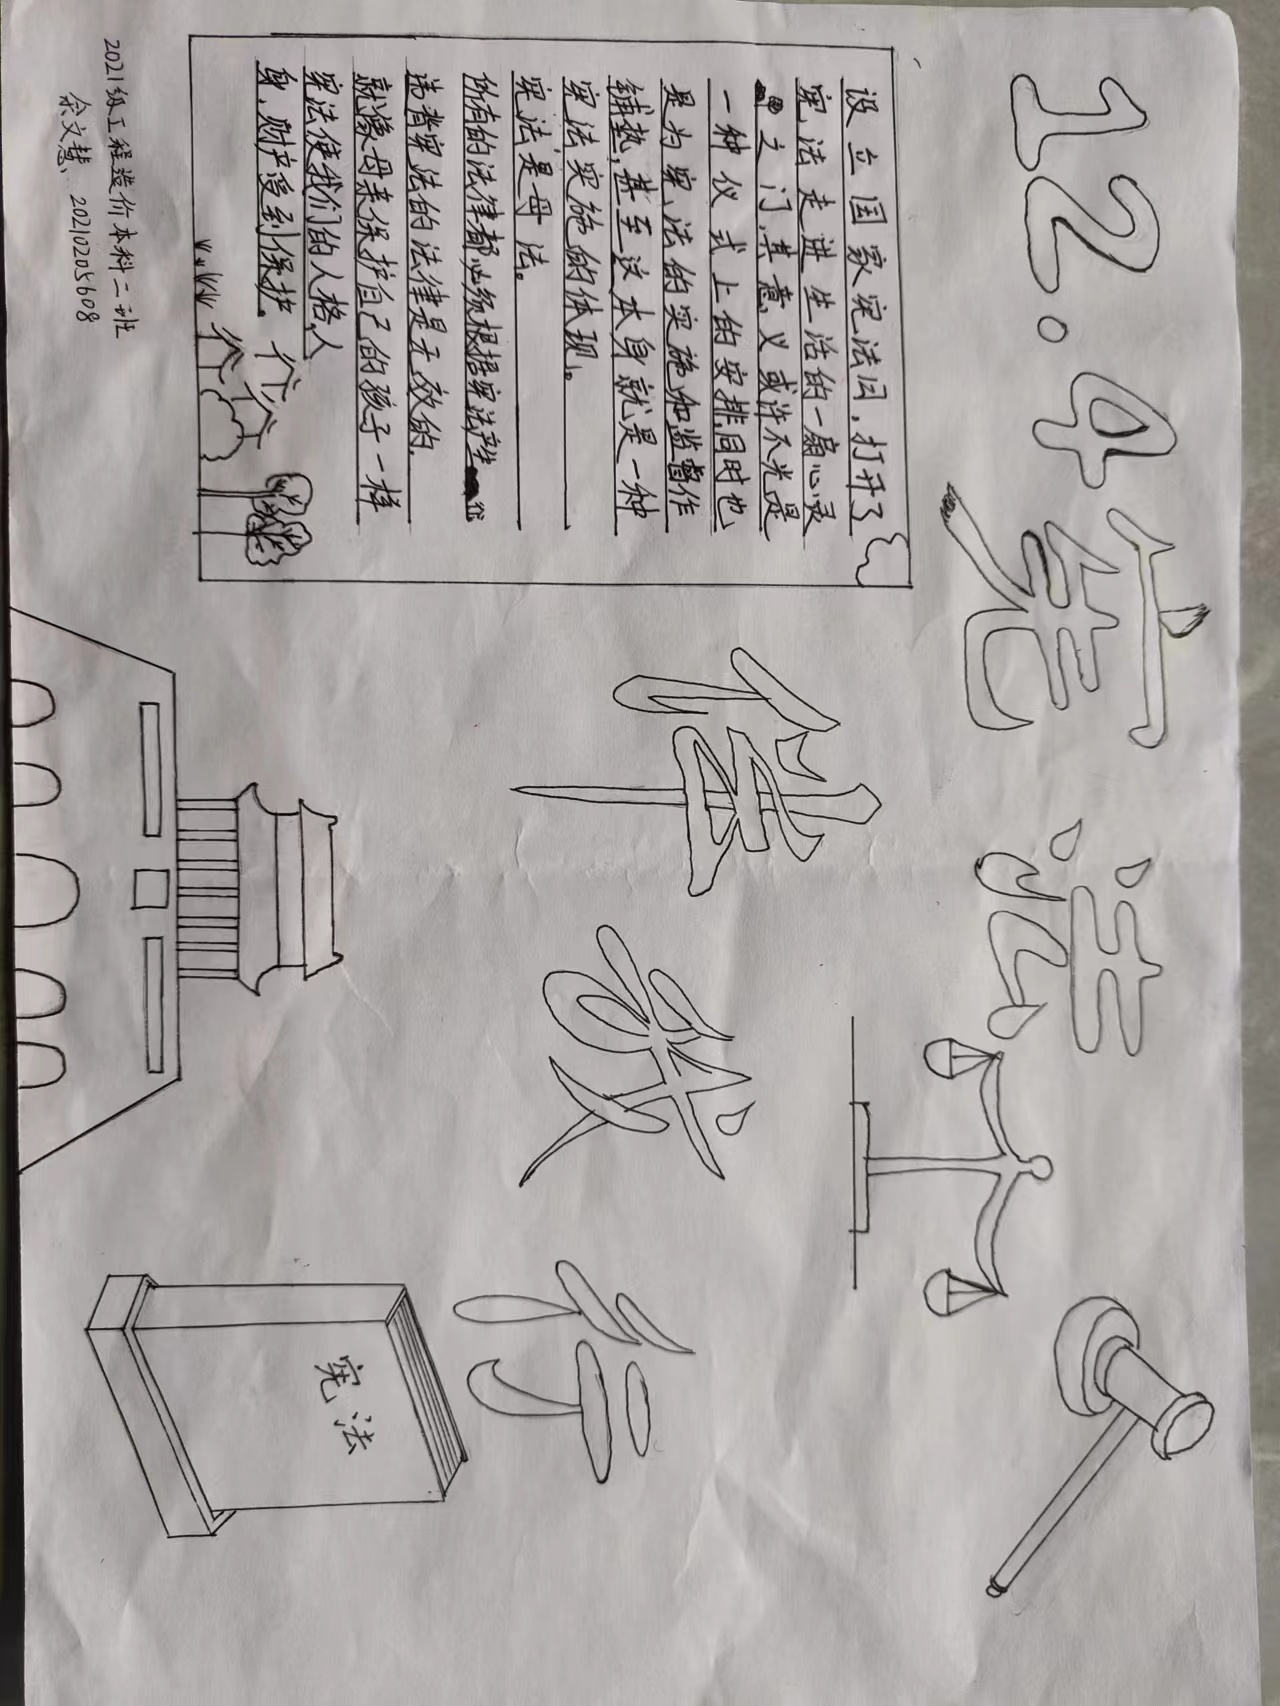 12.4 宪法
设立国家宪法日，打开了
宪法走进生活的一扇心灵
之门，其意义或许不光是
一种仪式上的安排，同时也
是为宪法的实施和监督作
铺垫，甚至这本身就是一种
宪法实施的体现。
宪法是母法。
所有的法律都必须根据宪法产生
违背宪法的法律是无效的.
就像母亲保护自己的孩子一样
宪法使我们的人格，人
身、财产受到保护。
伴我行
宪法
2021级工程造价本科二班
余文慧、2021020205608